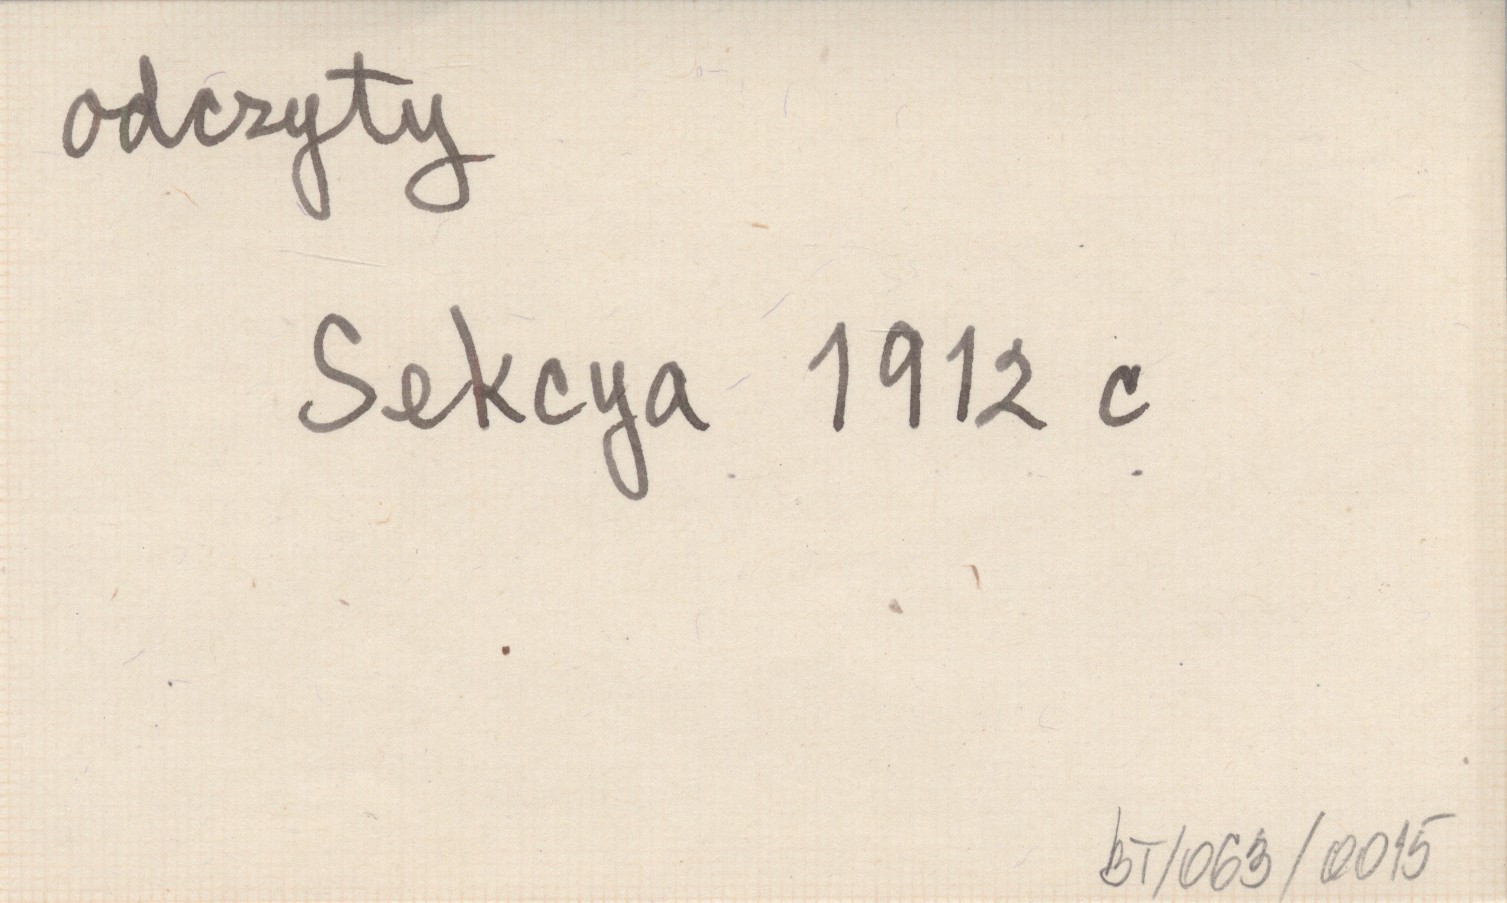 odczyty
Sekcya 1912 c
BT/063/0015